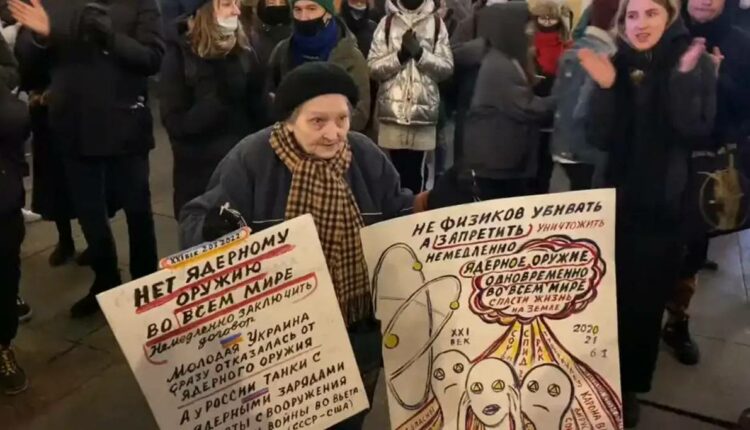 XXIВЕК 2.03 2022
НЕТ ЯДЕРНОМУ
ОРУЖИЮ
ВО ВСЕМ МИРЕ
НЕМЕДЛЕННО ЗАКЛЮЧИТЬ
ДОГОВОР
МОЛОДАЯ УКРАИНА
СРАЗУ ОТКАЗАЛАСЬ ОТ
ЯДЕРНОГО ОРУЖИЯ
А У РОССИИ ТАНКИ С
ЯДЕРНЫМИ ЗАРЯДАМИ
С ВООРУЖЕНИЯ
ВОЙНЫ ВО ВЬЕТА
(СССР-США)
НЕ ФИЗИКОВ УБИВАТЬ
А ЗАПРЕТИТЬ, УНИЧТОЖИТЬ
НЕМЕДЛЕННО
ЯДЕРНОЕ ОРУЖИЕ
ОДНОВРЕМЕННО
ВО ВСЕМ МИРЕ
СПАСТИ ЖИЗНЬ
НА ЗЕМЛЕ
XXI
ВЕК
2020
21
СПИД
РАК